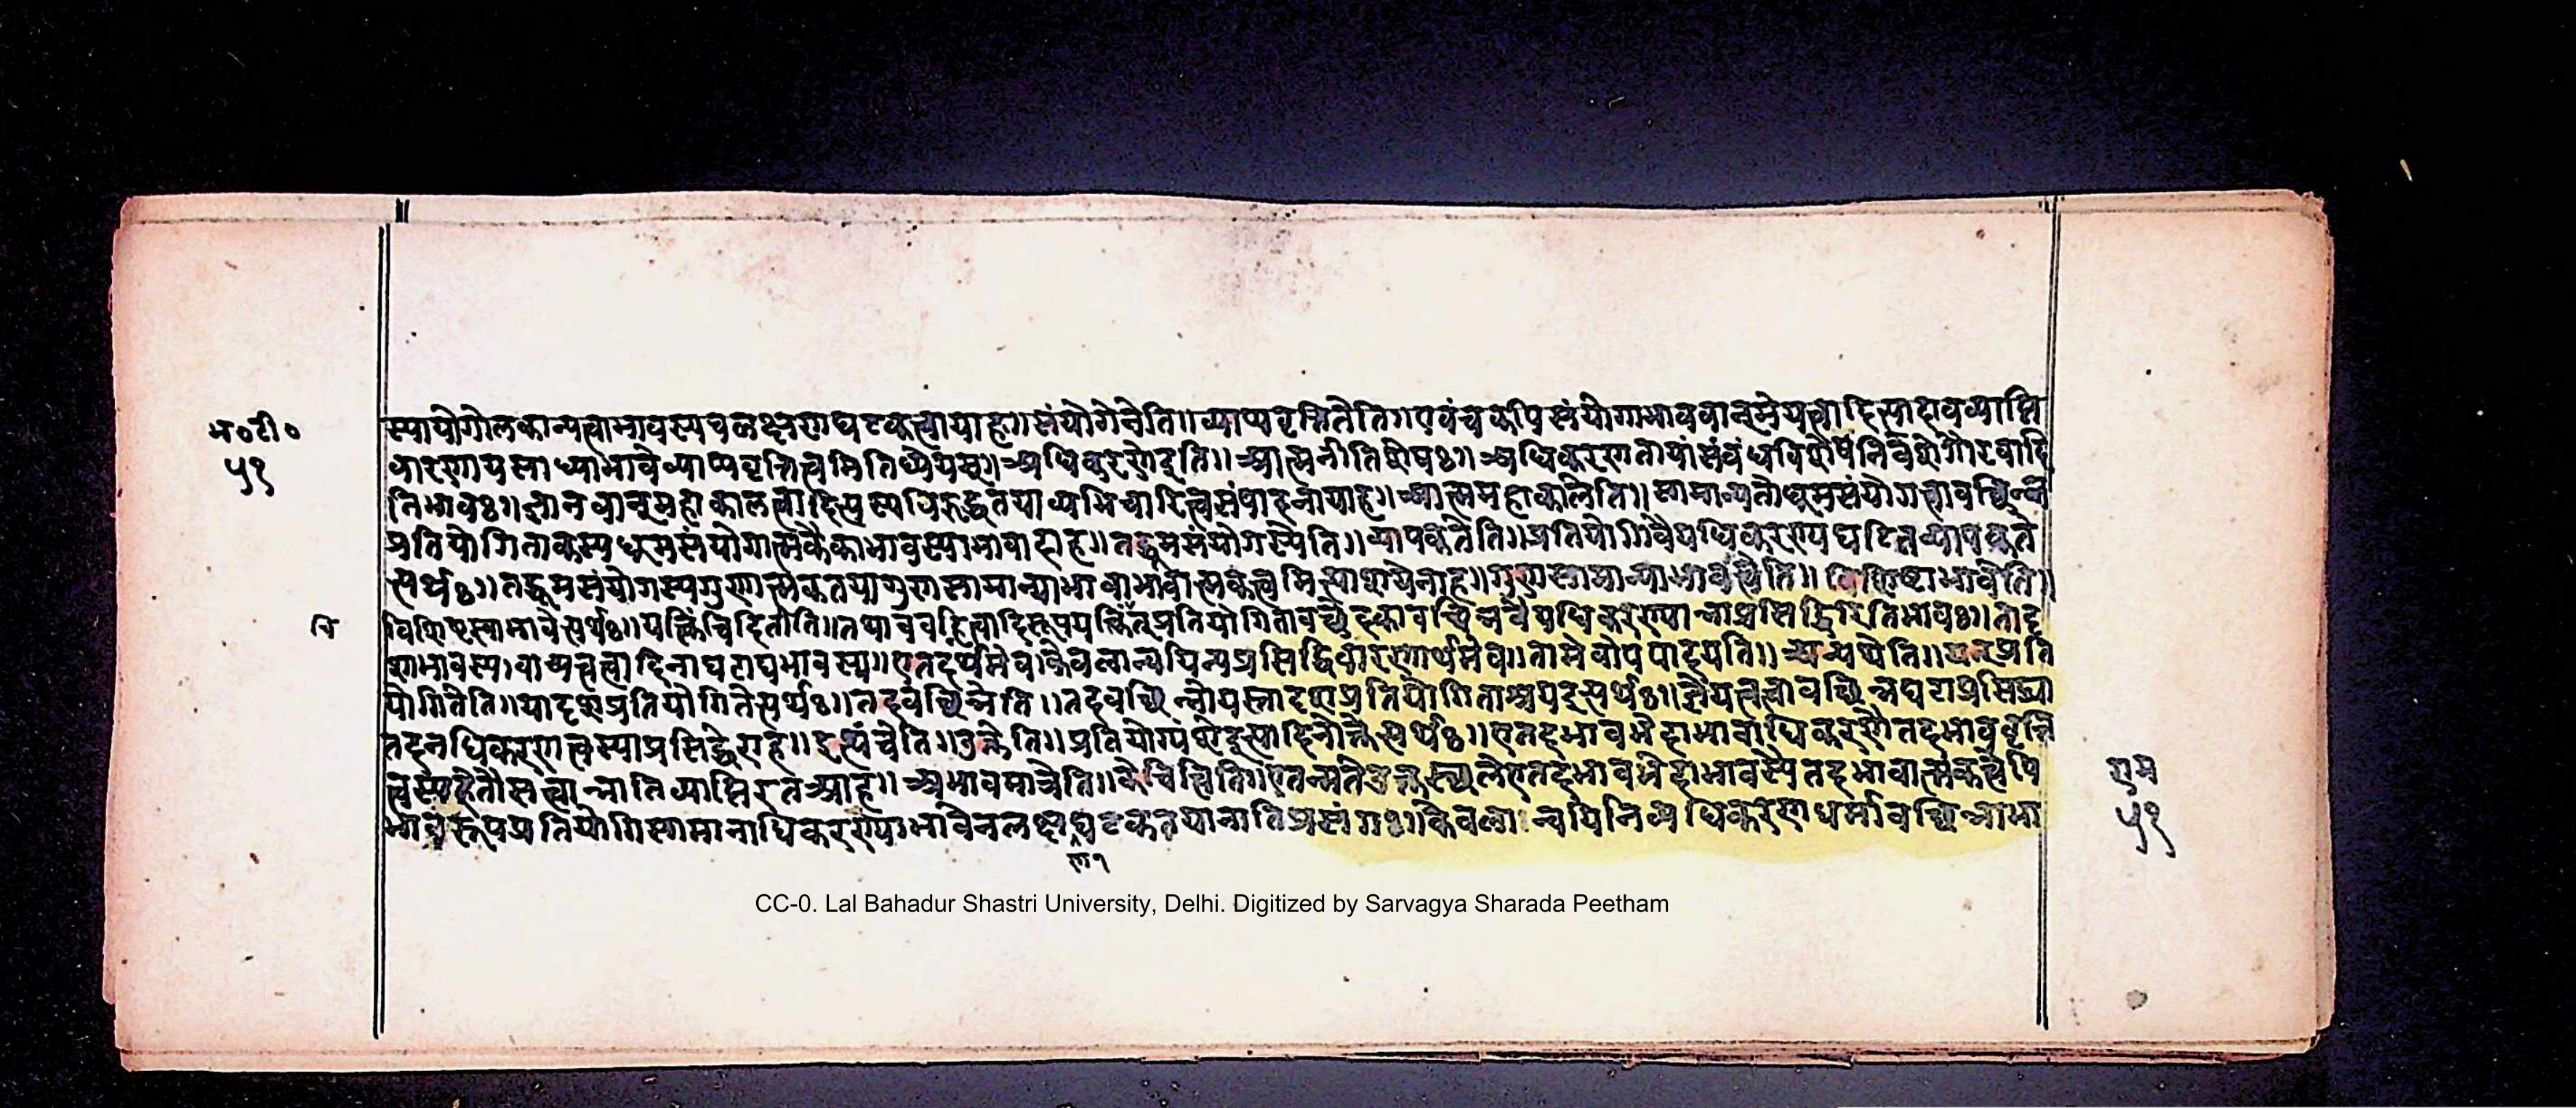 म॰टी॰
५१
स्यापोगोलकान्यत्वाभावस्य च लक्षणघटकत्वायाह॥संयोगेनेति॥व्याप्यवृत्तितेति॥एवंच कपिसंयोगाभाववान्प्रमेयत्वादित्यादावव्याप्ति
वारणाय साध्याभावे व्याप्यवृत्तित्वमिति ध्येयम्॥अधिकरण इति॥आत्मनीतिशेषः॥अधिकरणतायां संबंधविशेषनिवेशे गौरवादि
तिभावः॥ज्ञानवान् महाकालत्वादित्यस्य विरुद्धतया व्यभिचारित्वसंपादनायाह॥आत्ममहाकालेति॥सामान्यतो धूमसंयोगत्वावच्छिन्न
प्रतियोगिताकस्य धूमसंयोगात्मकैकाभावस्याभावादाह॥तद्धूमसंयोगस्येति॥व्यापकतेति॥प्रतियोगिवैयधिकरण्यघटितव्यापकते
त्यर्थः॥तद्धूमसंयोगस्य गुणात्मकतया गुणसामान्याभावाभावात्मकत्वमित्याशयेनाह॥गुणसामान्याभावस्येति॥विशिष्टाभावेति॥
वि
विशिष्टस्याभावेत्यर्थः॥यत्किंचिदितीति॥तथाच वह्नित्वादिरूपयत्किंचित्प्रतियोगितावच्छेदकावच्छिन्नवैयधिकरण्यान्नाप्रसिद्धिरितिभावः॥तादृ
शाभावस्य॥वाच्यत्वत्वादिना घटाद्यभावस्य॥एतदर्थमेव॥केवलान्वयिन्यप्रसिद्धिवारणार्थमेव॥तामेवोपपादयति॥अन्यथेति॥यत्प्रति
योगितेति॥यादृशप्रतियोगितेत्यर्थः॥तदवच्छिन्नेति॥तदवच्छिन्नो यस्तादृशप्रतियोगिताश्रय इत्यर्थः॥ज्ञेयत्वत्वावच्छिन्नघटाप्रसिद्ध्या
तदनधिकरणत्वस्याप्रसिद्धेराह॥इत्थंचेति॥उक्तेति॥प्रतियोग्यंशेइत्यादिनोक्तेत्यर्थः॥एतदभावभेदाभावाधिकरणे तदभाववृत्ति
त्वस्य हेतौ सत्त्वान्नातिव्याप्तिरत आह॥अभावमात्रेति॥केचित्त्विति॥एतन्मते उक्तस्थले एतदभावभेदाभावस्यैतदभावात्मकत्वेपि
भावरूपप्रतियोगिसामानाधिकरण्याभावेन लक्षणघटकतया नातिप्रसंगः॥केवलान्वयिनि व्यधिकरणधर्मावच्छिन्नाभा
ण१
राम
५१
CC-0. Lal Bahadur Shastri University, Delhi. Digitized by Sarvagya Sharada Peetham